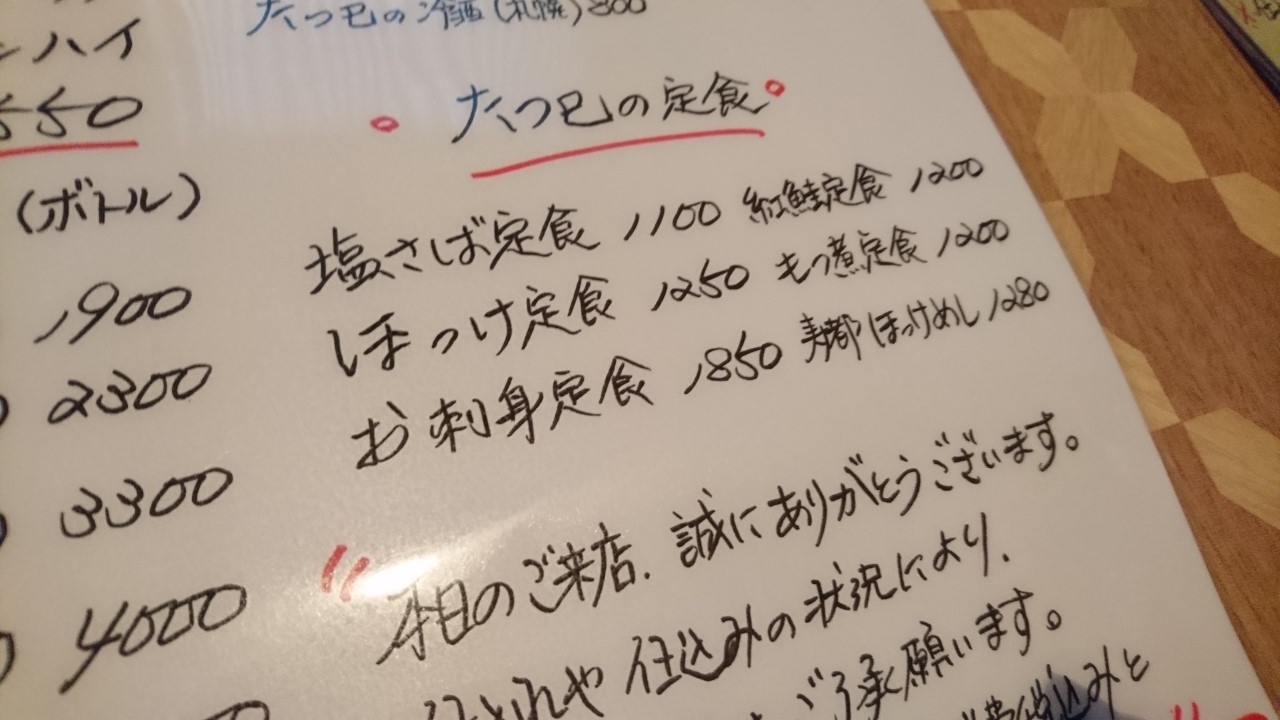 たつ巳の冷酒(札幌)800
ハイ
550
(ボトル)
1900
2300
3300
4000
たつ巳の定食
塩さば定食 1100 紅鮭定食 1200
ほっけ定食 1250 もつ煮定食 1200
お刺身定食 1850 寿都ほっけめし 1280
本日のご来店、誠にありがとうございます。
や仕込みの状況により、
ご了承願います。
込みと